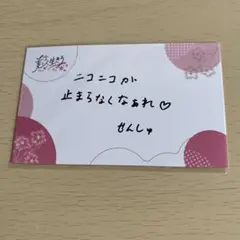 ニコニコが
止まらなくなぁれ♡
せんしゅ